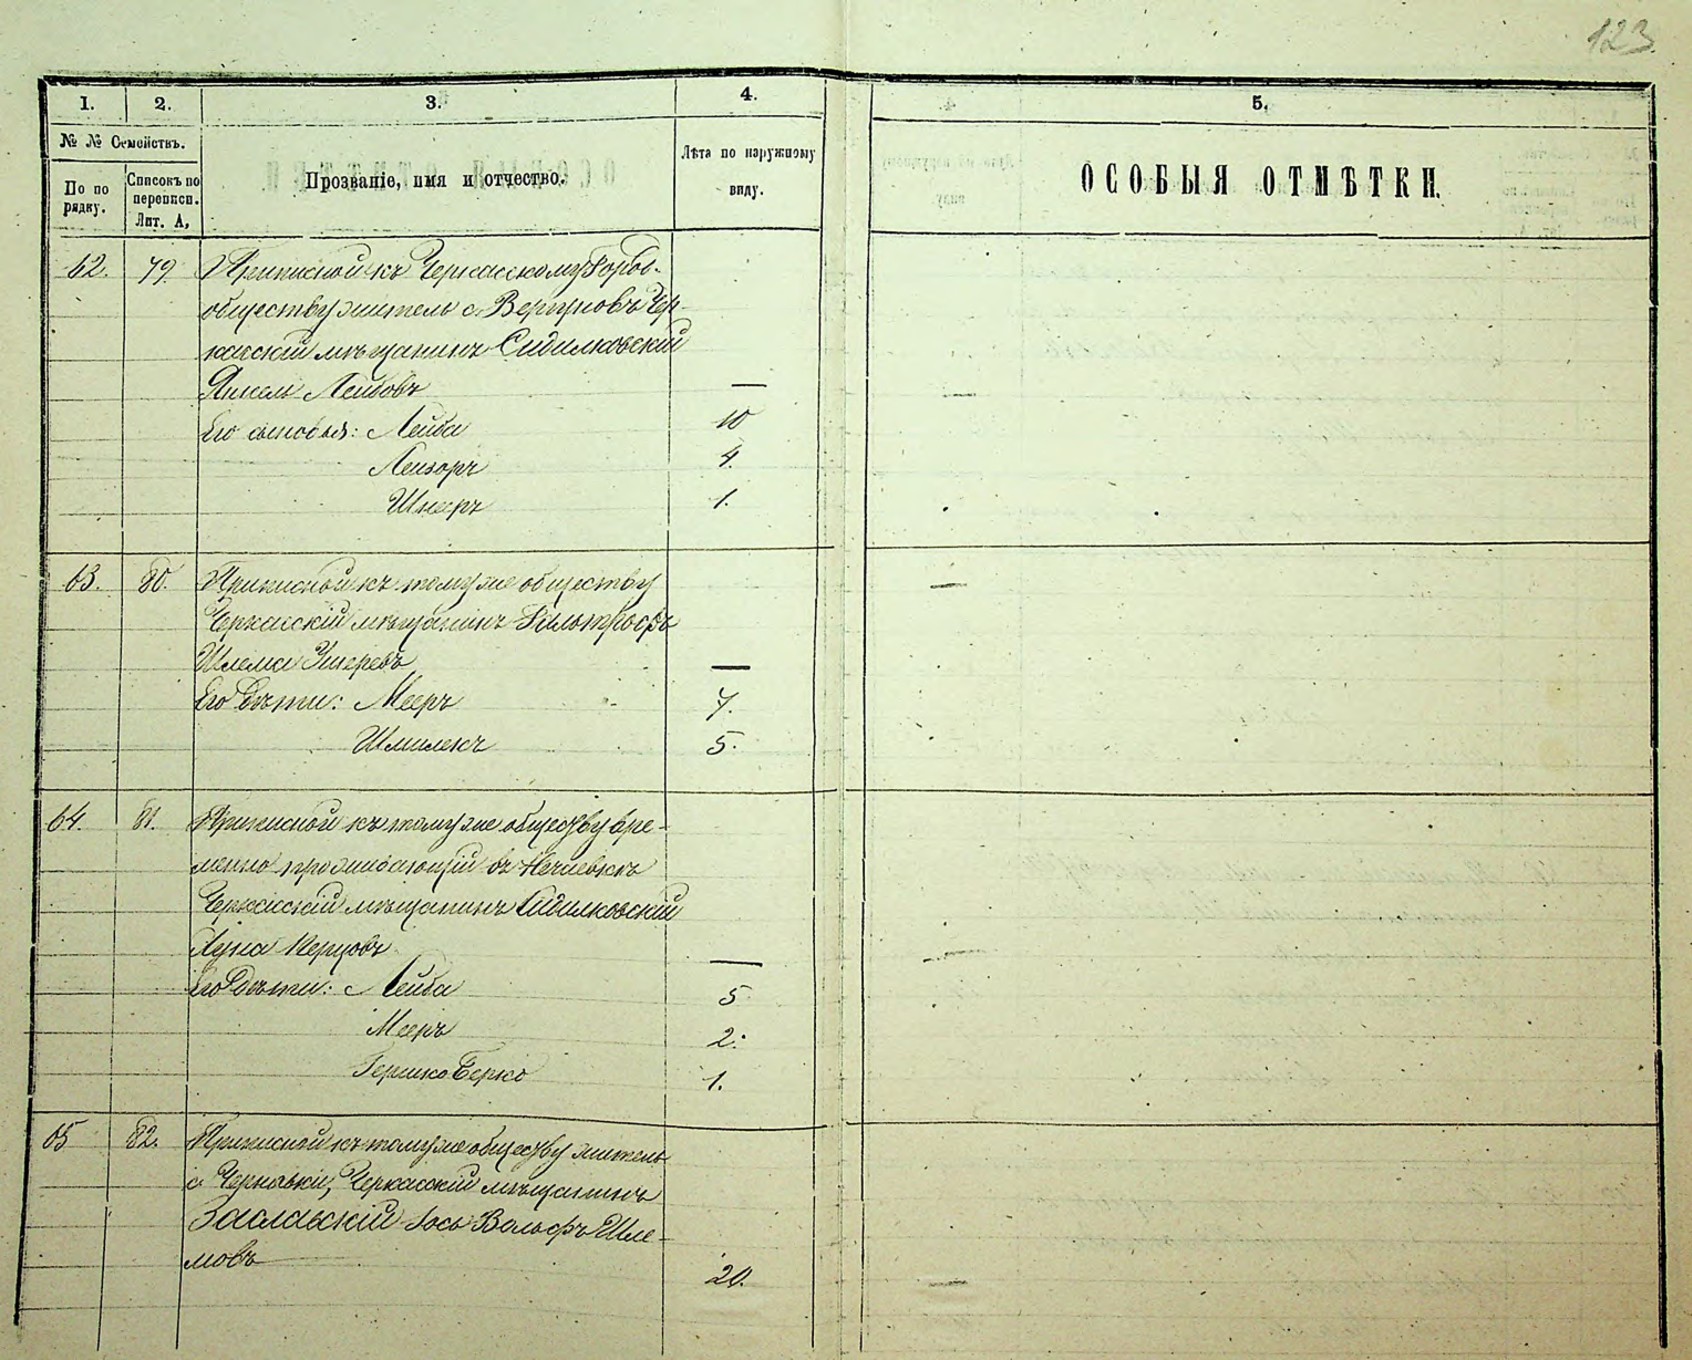 123.
1.
2.
3.
4.
5.
№ № Семействъ.
По по рядку.
Списокъ по переписи. Лит. А,
Прозваніе, имя и отчество.
Лѣта по наружному виду.
ОСОБЫЯ ОТМѢТКИ.
62. 79. Приписной къ Черкасскому Город.
обществу житель с. Вергуновъ Чер-
касскій мѣщанинъ Сидилковскій
Янкель Лейбовъ —
Его сыновья: Лейба 10
Лейзоръ 4.
Шнееръ 1.
63. 80. Приписной къ тому же обществу
Черкасскій мѣщанинъ
Шлема Ушеревъ —
Его дѣти: Мееръ 7.
Шмилекъ 5.
64. 81. Приписной къ тому же общеву вре-
менно проживающій въ Нечаевкѣ
Черкасскій мѣщанинъ Сидилковскій
—
Его дѣти: Лейба 5
Мееръ 2.
Гершко Берко 1.
65 82. Приписной къ тому же общеву житель
с Чернавки, Черкасскій мѣщанинъ
Заславскій Іось Вольфъ Шле-
мовъ 20.